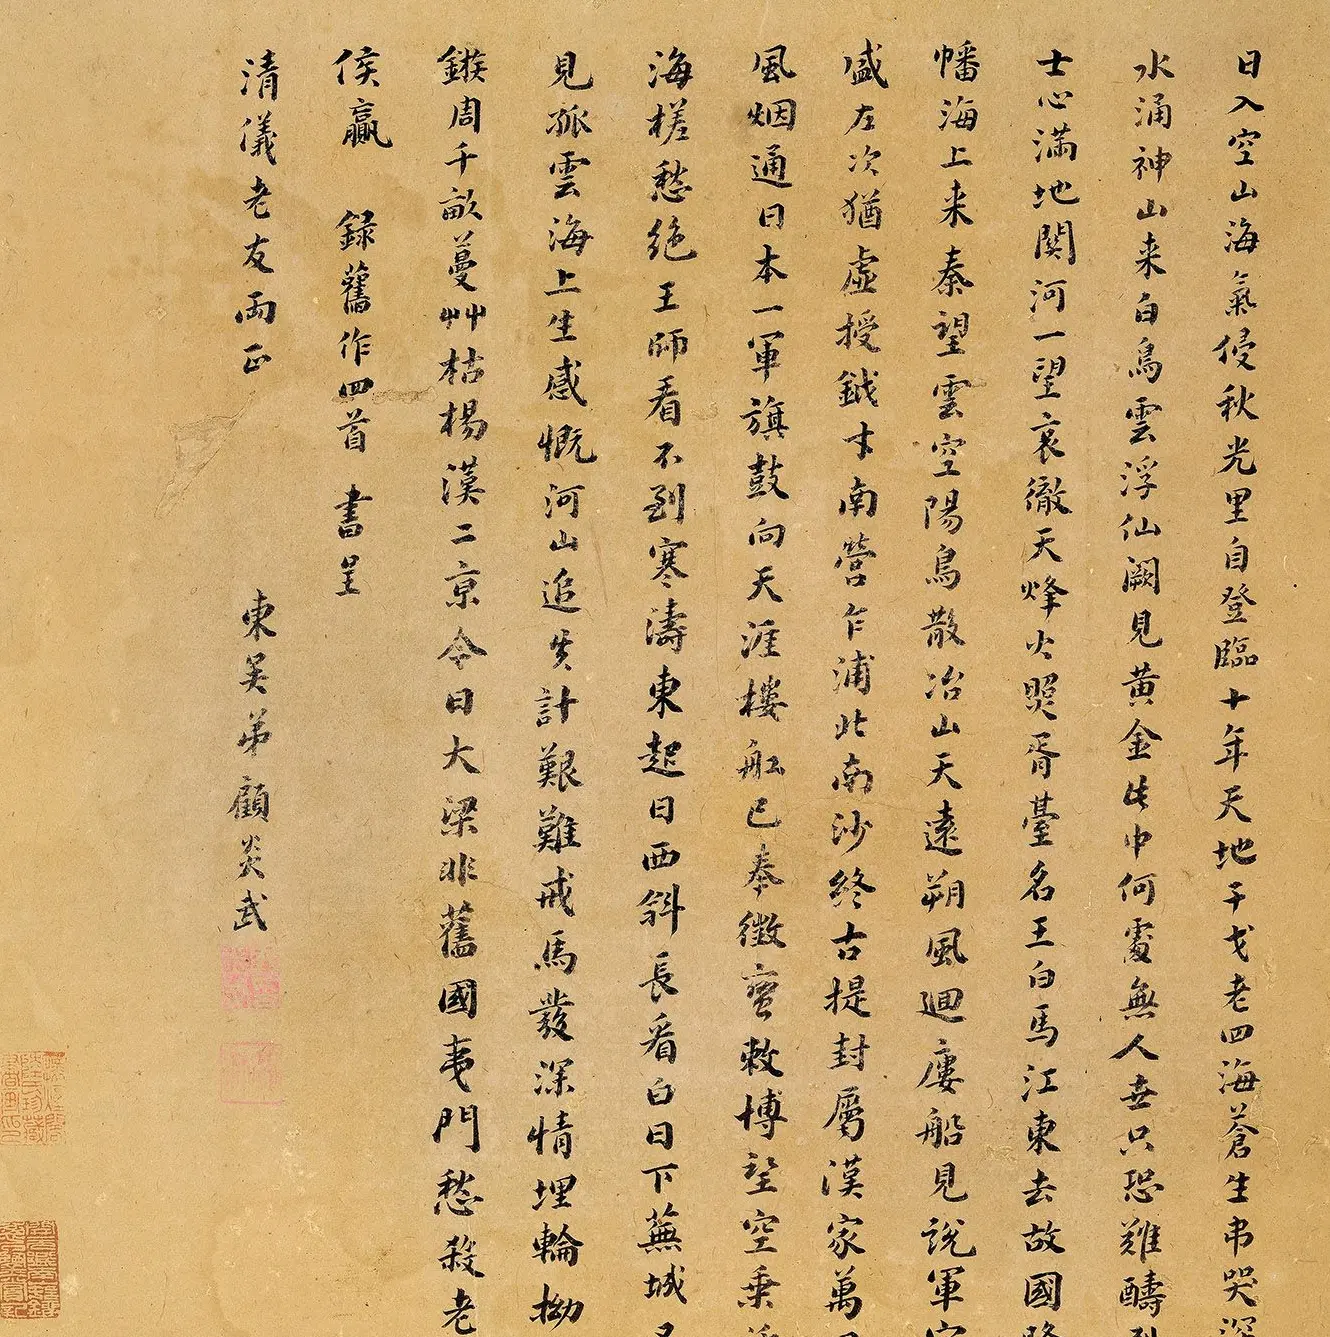 日入空山海氣侵秋光里自登臨十年天地干戈老四海蒼生弔哭深
水涌神山来白鳥雲浮仙闕見黄金此中何處無人世只恐難酬烈
士心滿地關河一望哀徹天烽火照胥臺名王白馬江東去故國降
幡海上来秦望雲空陽鳥散冶山天遠朔風迴廔船見說軍容
盛左次猶虛授鉞才南營乍浦北南沙終古提封屬漢家萬里
風烟通日本一軍旗鼓向天涯樓舩已奉徵蠻敕博望空乗泛
海槎愁絕王師看不到寒濤東起日西斜長看白日下蕪城又
見孤雲海上生感慨河山追失計艱難戎馬發深情埋輪拗
鏃周千畝蔓艸枯楊漢二京今日大梁非舊國夷門愁殺老
侯嬴 録舊作四首 書呈
清儀老友兩正
東吴弟顧炎武